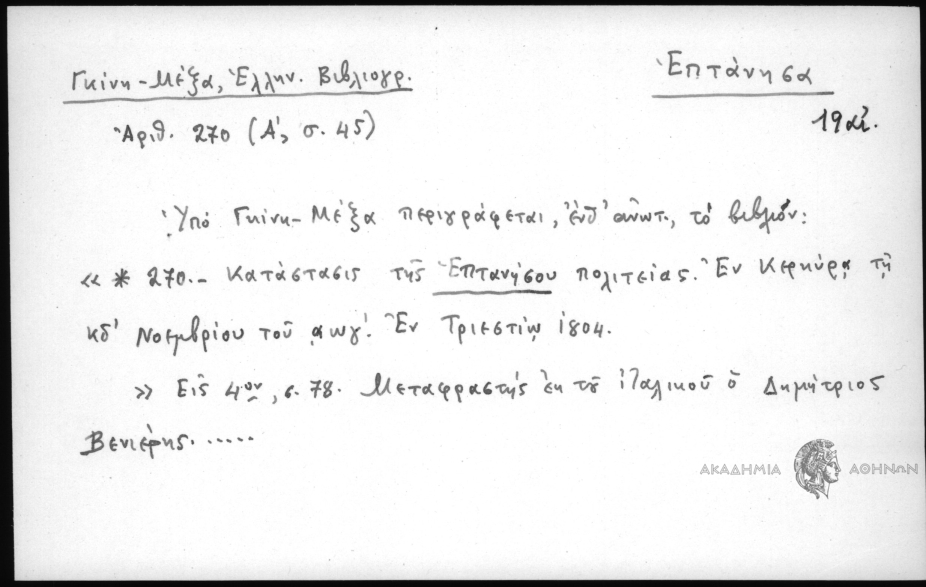 Γκίνη-Μέξα, Ἑλλην. Βιβλιογρ.
Ἑπτάνησα
Ἀριθ. 270 (Α', σ. 45)
19 αἰ.
Ὑπό Γκίνη-Μέξα περιγράφεται, ἐνθ' ἀνωτ., τό βιβλίον:
« * 270.- Κατάστασις τῆς Ἑπτανήσου πολιτείας. Ἐν Κερκύρᾳ τῇ
κδ' Νοεμβρίου τοῦ ͵αωγ'. Ἐν Τριεστίῳ 1804.
» Εἰς 4ον, σ. 78. Μεταφραστής ἐκ τοῦ ἰταλικοῦ ὁ Δημήτριος
Βενιέρης.....
ΑΚΑΔΗΜΙΑ ΑΘΗΝΩΝ